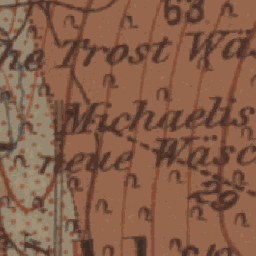 63
he Trost Wäs
Michaelis
neue Wäsc
29